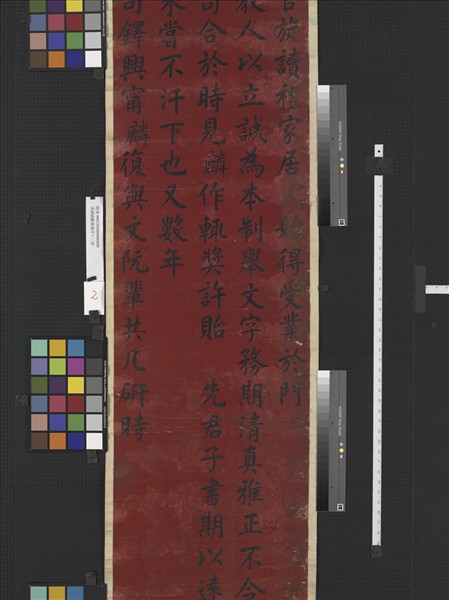 放讀禮家居始得受業於門
教人以立誠為本制舉文字務期清真雅正不
合於時見麟作輒獎許貽 先君子書期以遠
未嘗不汗下也又數年
司鐸興甯麟復與文阮輩共几硏時
2